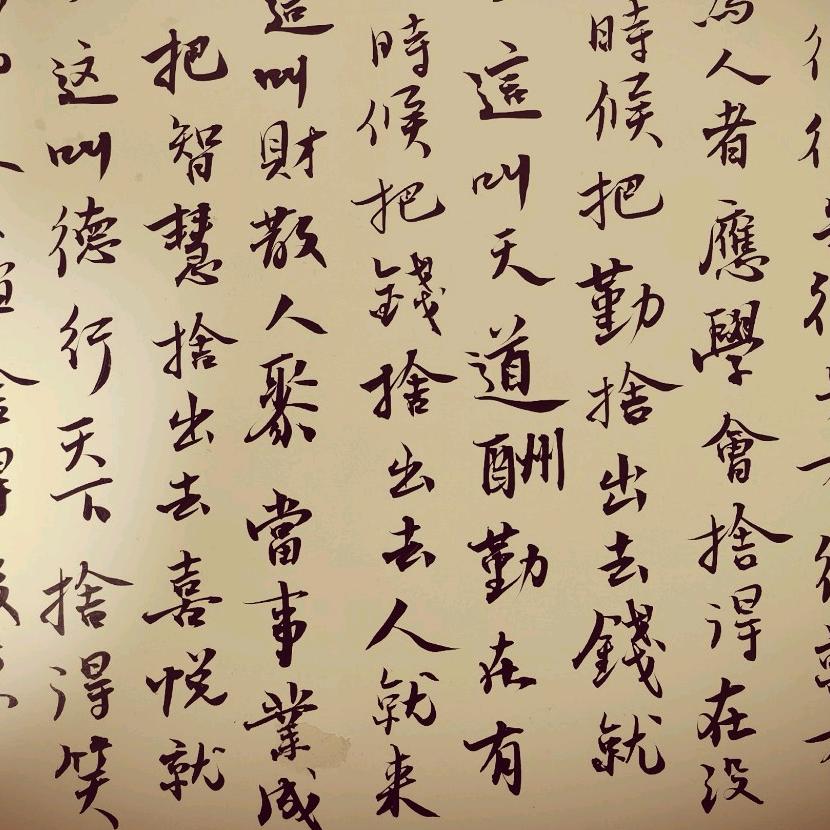 為人者應學會捨得在没
時候把勤捨出去錢就
這叫天道酬勤在有
時候把錢捨出去人就来
這叫財散人聚當事業成
把智慧捨出去喜悅就
这叫德行天下捨得笑